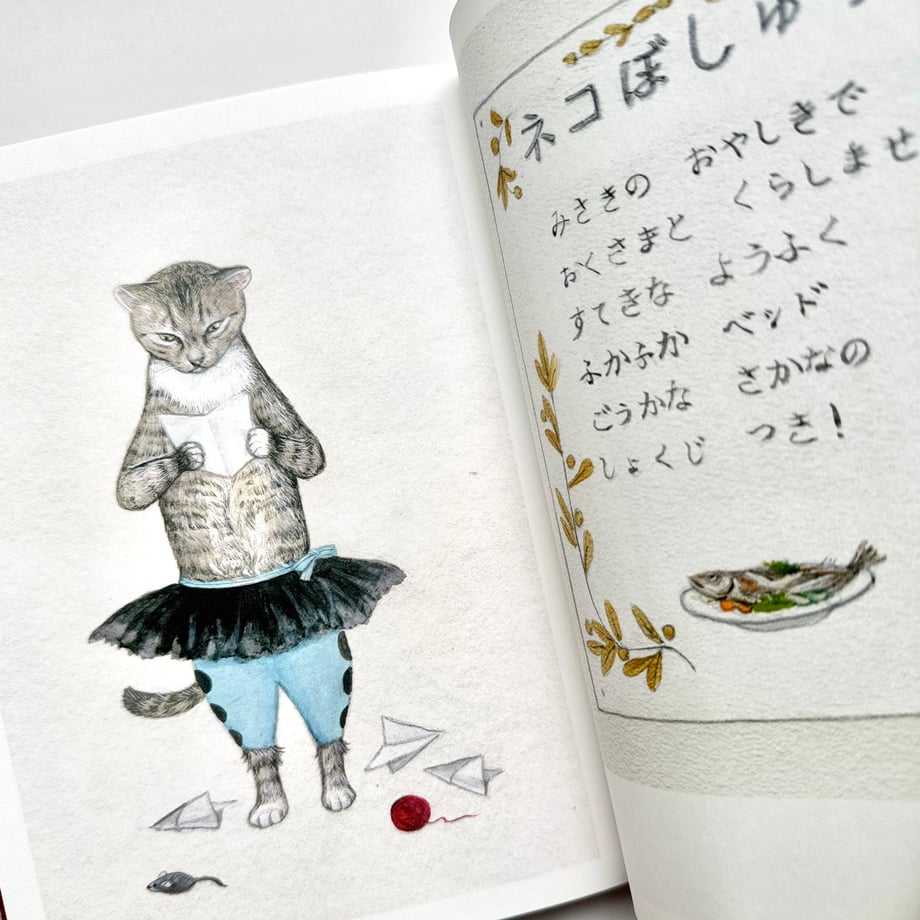 ネコぼしゅう
みさきの おやしきで
おくさまと くらしませ
すてきな ようふく
ふかふか ベッド
ごうかな さかなの
しょくじ つき!